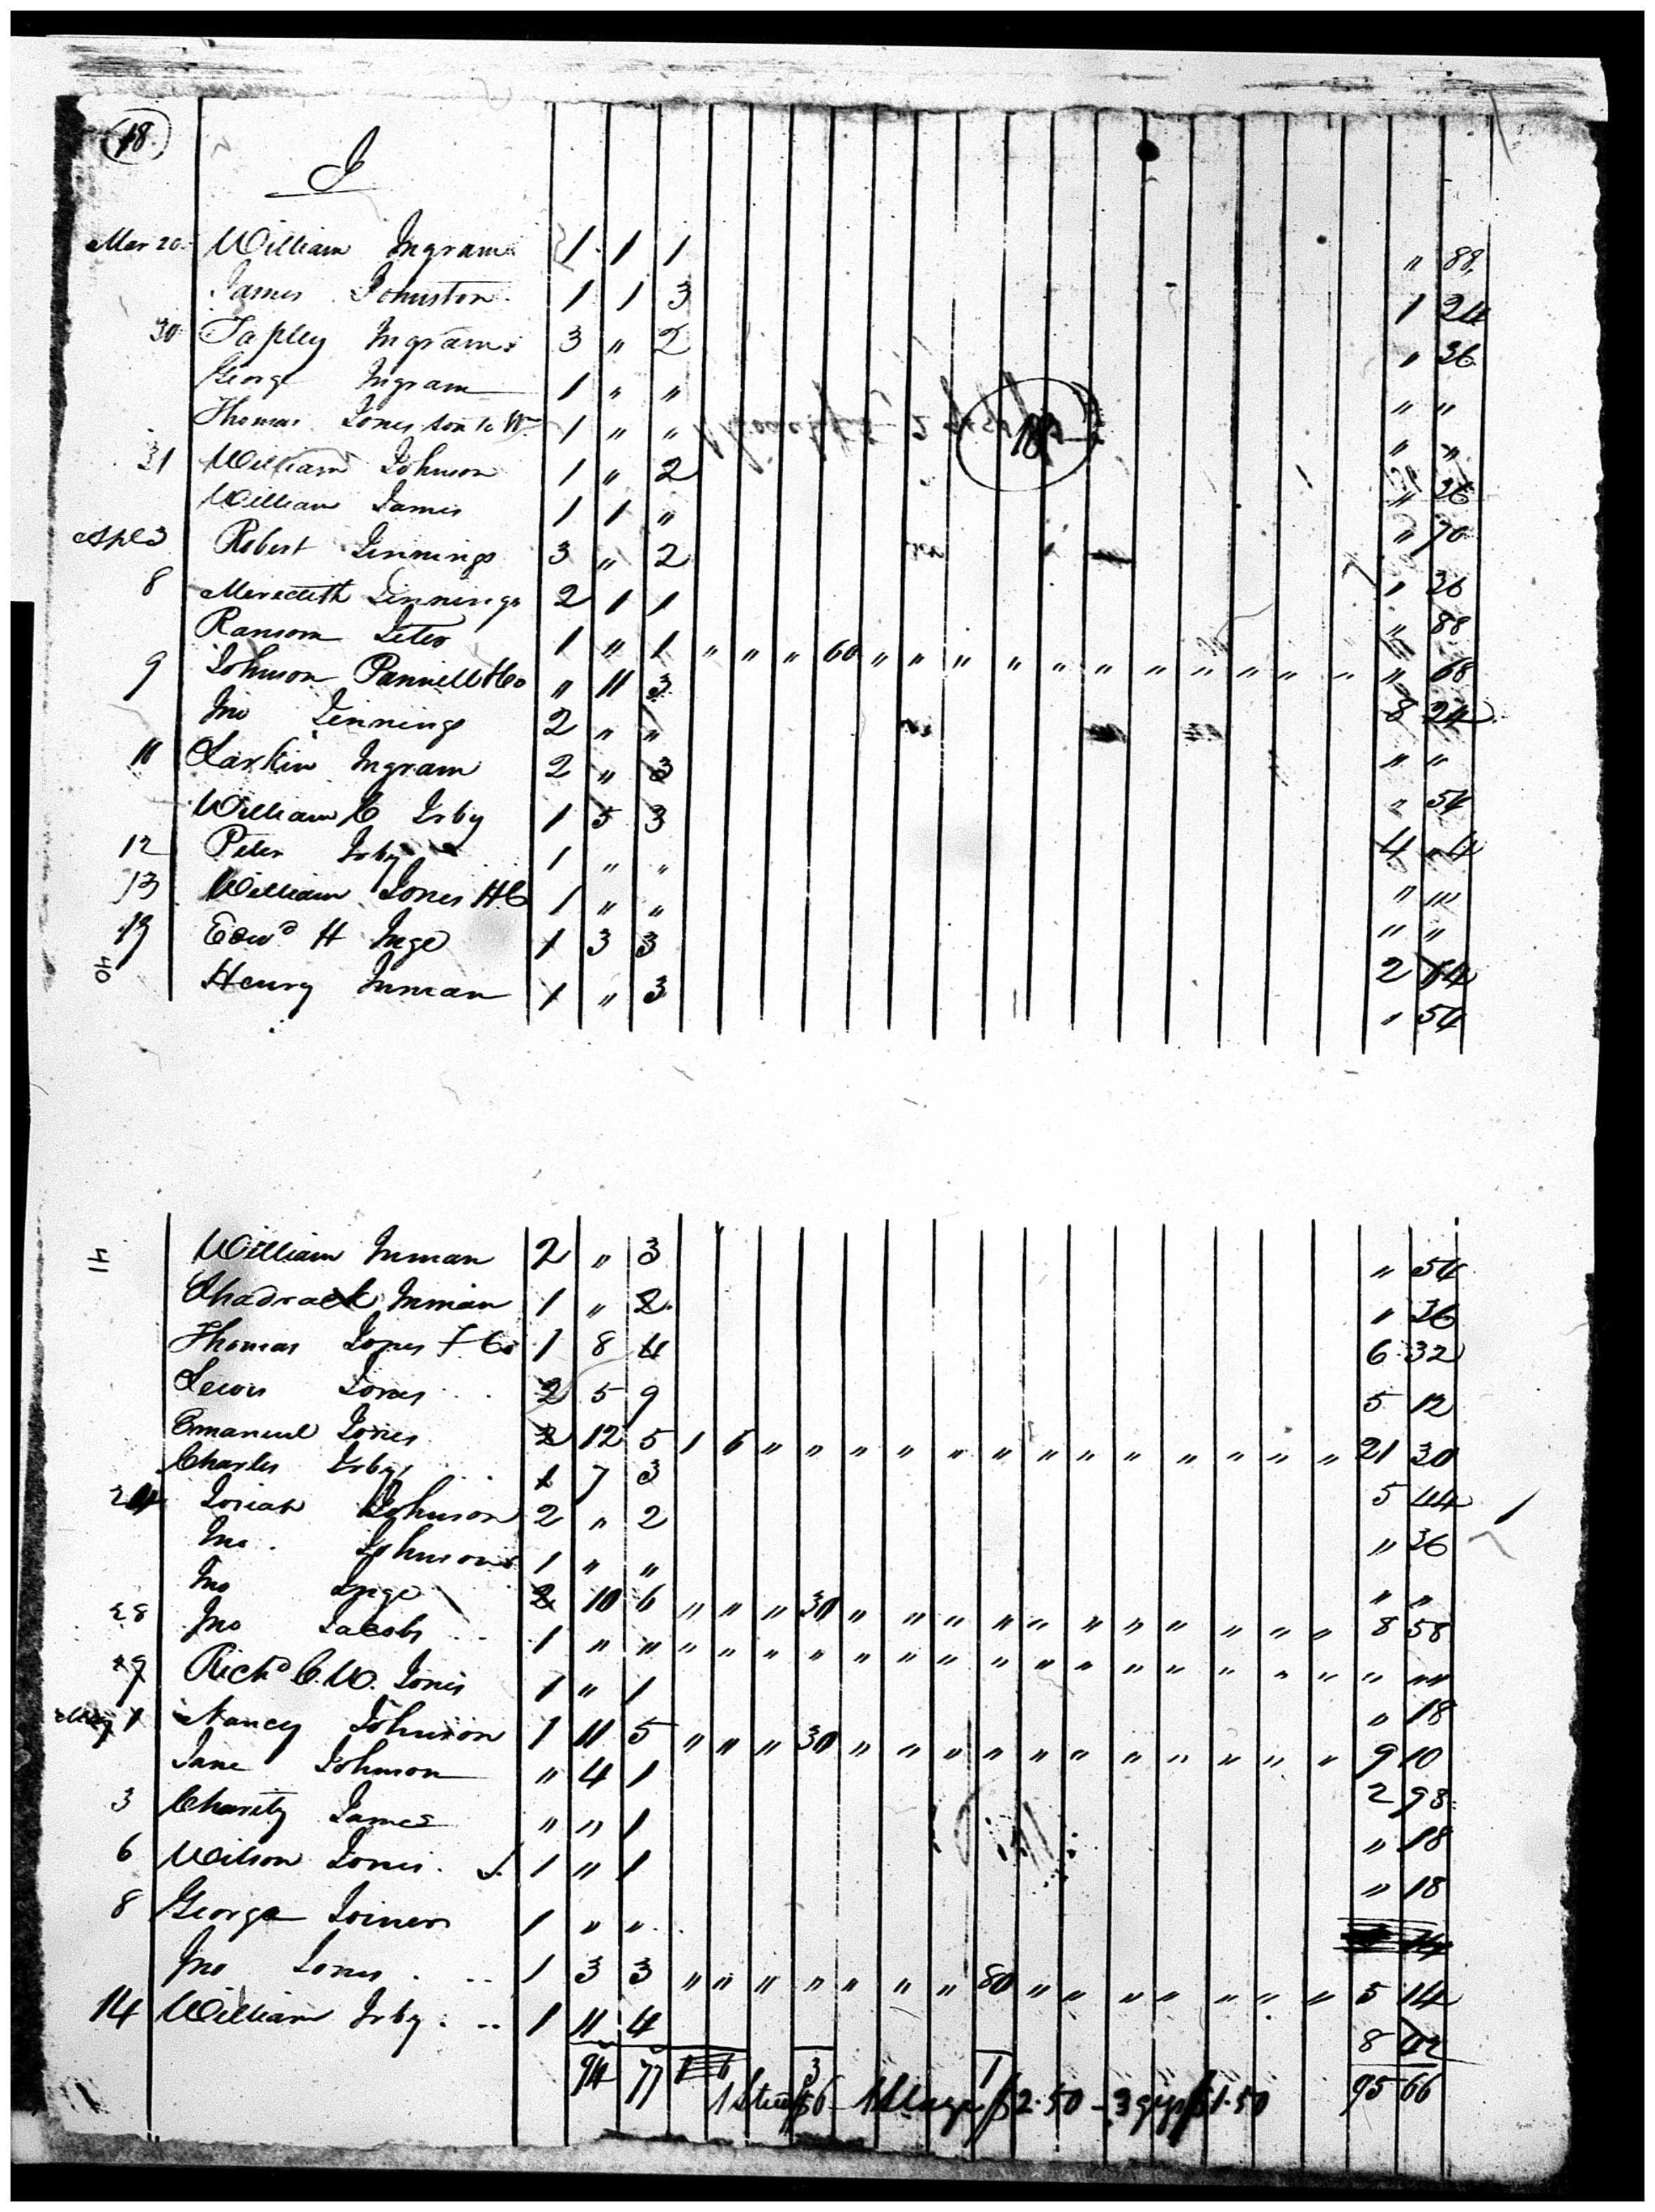 18
J
Mar 20 William Ingram 1 1 1 " 88
James Johnston 1 1 3 1 24
30 Tapley Ingram 3 " 2 " 36
George Ingram 1 " " " "
Thomas Jones son to Wm 1 " " " "
31 William Johnson 1 " 2 " 36
William James 1 1 " " 70
Apl 3 Robert Jennings 3 " 2 " 36
8 Meredith Jennings 2 1 1 " 88
Ransom Jeter 1 " 1 " " " 60 " " " " " " " " " " " " 68
9 Johnson Pannill & Co " 11 3 8 24
Jno Jennings 2 " " " "
11 Larkin Ingram 2 " 3 " 54
William C Irby 1 5 3 4 " 4
12 Peter Irby 1 " " " "
13 William Jones HC 1 " " " "
19 Edwd H Inge 1 3 3 2 64
Henry Inman 1 " 3 " 54
40
41
William Inman 2 " 3 " 54
Shadrack Inman 1 " 2 " 36
Thomas Jones 1 8 4 6 32
Lewis Jones 2 5 9 5 12
Emanuel Jones 2 12 5 1 6 " " " " " " " " " " " " " 21 30
Charles Irby 1 7 3 5 44
24 Josiah Johnson 2 " 2 " 36
Jno Johnson 1 " " " "
Jno Inge 2 10 6 " " " 30 " " " " " " " " " " " 8 58
28 Jno Jacobs 1 " " " " " " " " " " " " " " " " " " " "
29 Richd C. W. Jones 1 " 1 " 18
May 1 Nancy Johnson 1 11 5 " " " 30 " " " " " " " " " " " 9 10
Jane Johnson " 4 1 2 98
3 Charity James " " 1 " 18
6 Wilson Jones 1 " 1 " 18
8 George Joiner 1 " "
Jno Jones 1 3 3 " " " " " " " 80 " " " " " " " 5 14
14 William Irby 1 11 4 8 42
94 77 1 6 3 1 95 66
1 Stud $6 1 Stage $2.50 - 3 gigs $1.50